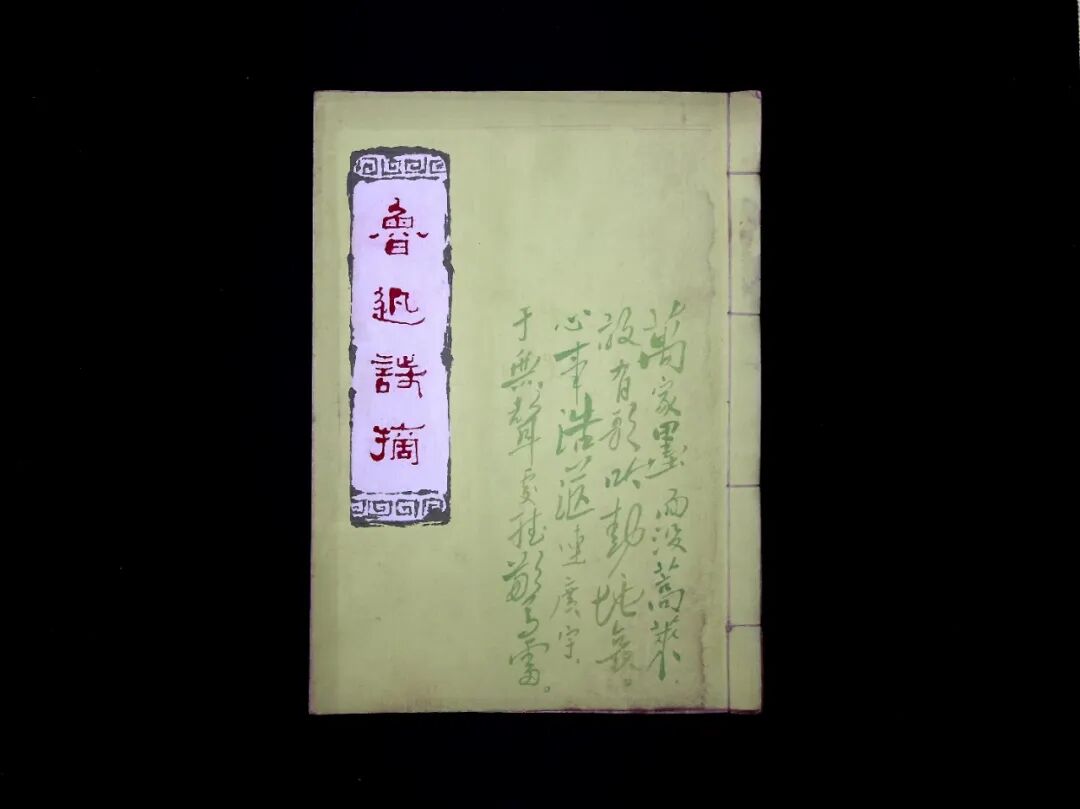 魯迅詩摘
萬家墨面没蒿萊，
敢有歌吟動地哀。
心事浩茫連廣宇，
于無聲處聽驚雷。